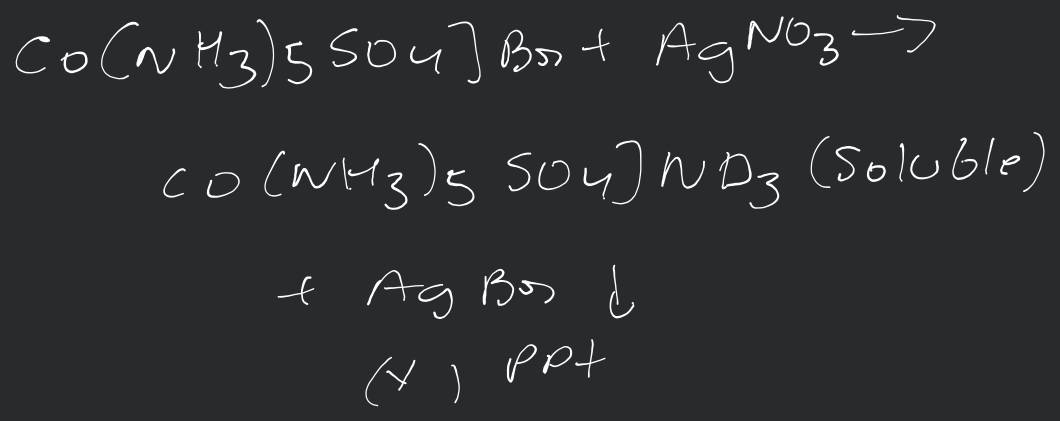 Co(NH3)5 SO4] Br + AgNO3 →
CO(NH3)5 SO4] NO3 (Soluble)
+ AgBr ↓
(Y) PPt